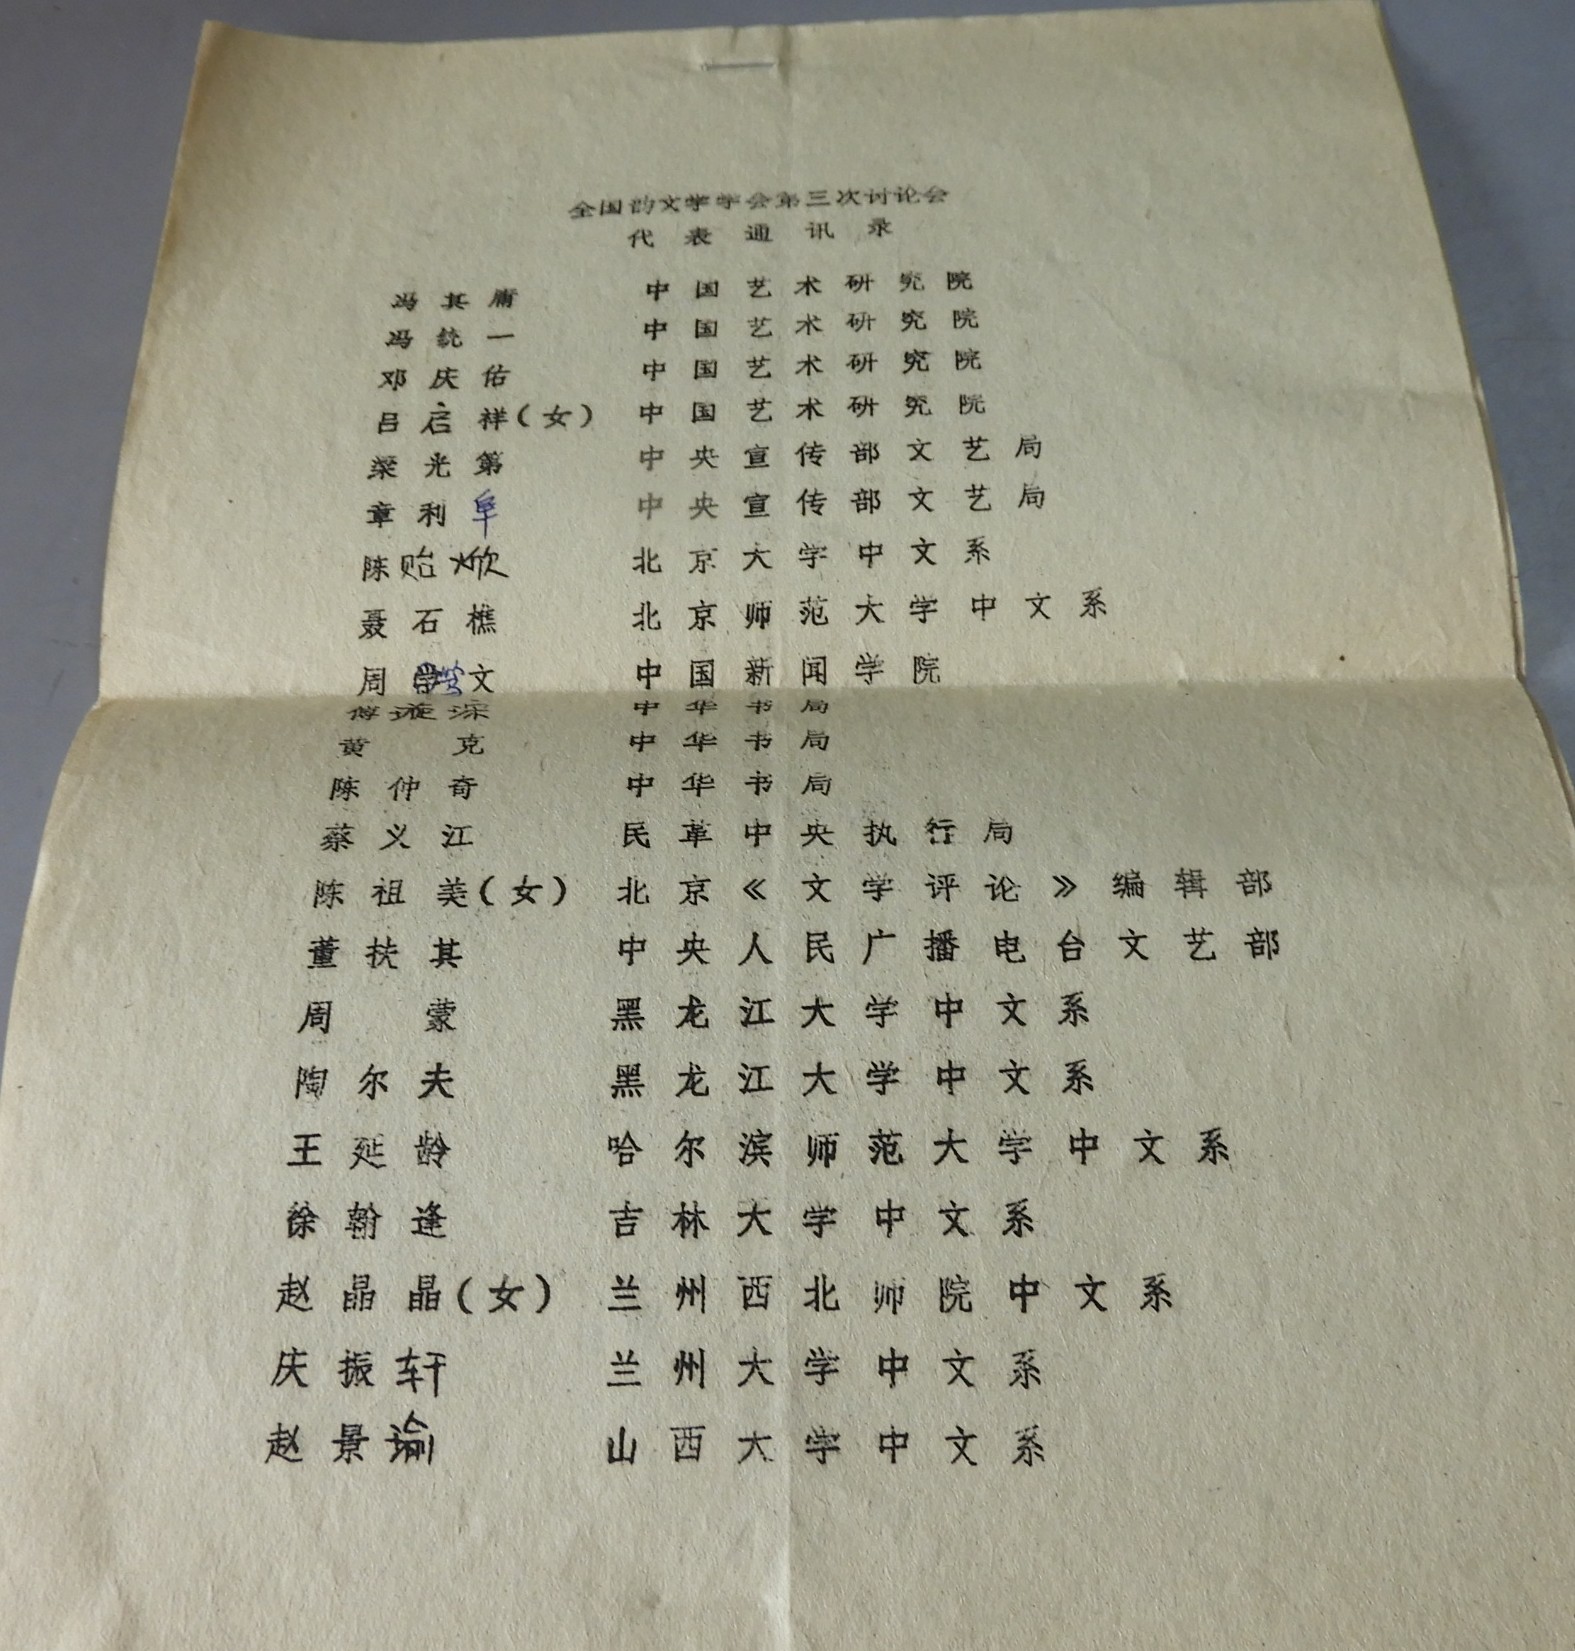 全国韵文学学会第三次讨论会
代表通讯录
冯其庸 中国艺术研究院
冯统一 中国艺术研究院
邓庆佑 中国艺术研究院
吕启祥(女) 中国艺术研究院
梁光第 中央宣传部文艺局
章利阜 中央宣传部文艺局
陈贻焮 北京大学中文系
聂石樵 北京师范大学中文系
周文 中国新闻学院
傅璇琮 中华书局
黄克 中华书局
陈仲奇 中华书局
蔡义江 民革中央执行局
陈祖美(女) 北京《文学评论》编辑部
董扶其 中央人民广播电台文艺部
周蒙 黑龙江大学中文系
陶尔夫 黑龙江大学中文系
王延龄 哈尔滨师范大学中文系
徐翰逢 吉林大学中文系
赵晶晶(女) 兰州西北师院中文系
庆振轩 兰州大学中文系
赵景瑜 山西大学中文系